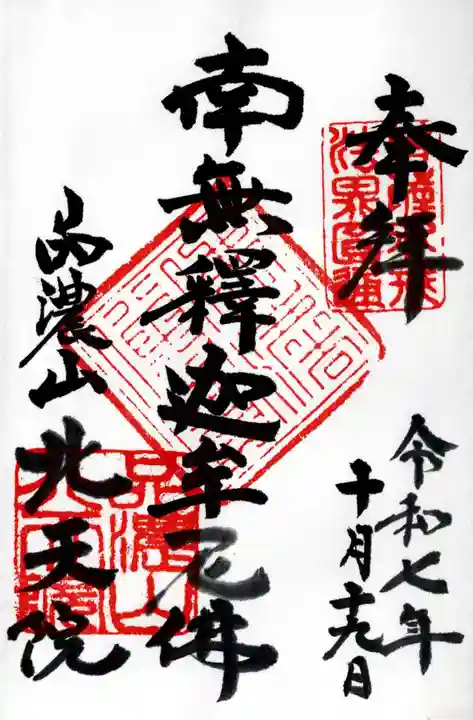 奉拝
令和七年
十月十九日
南無釋迦牟尼佛
品濃山
北天院
品濃山